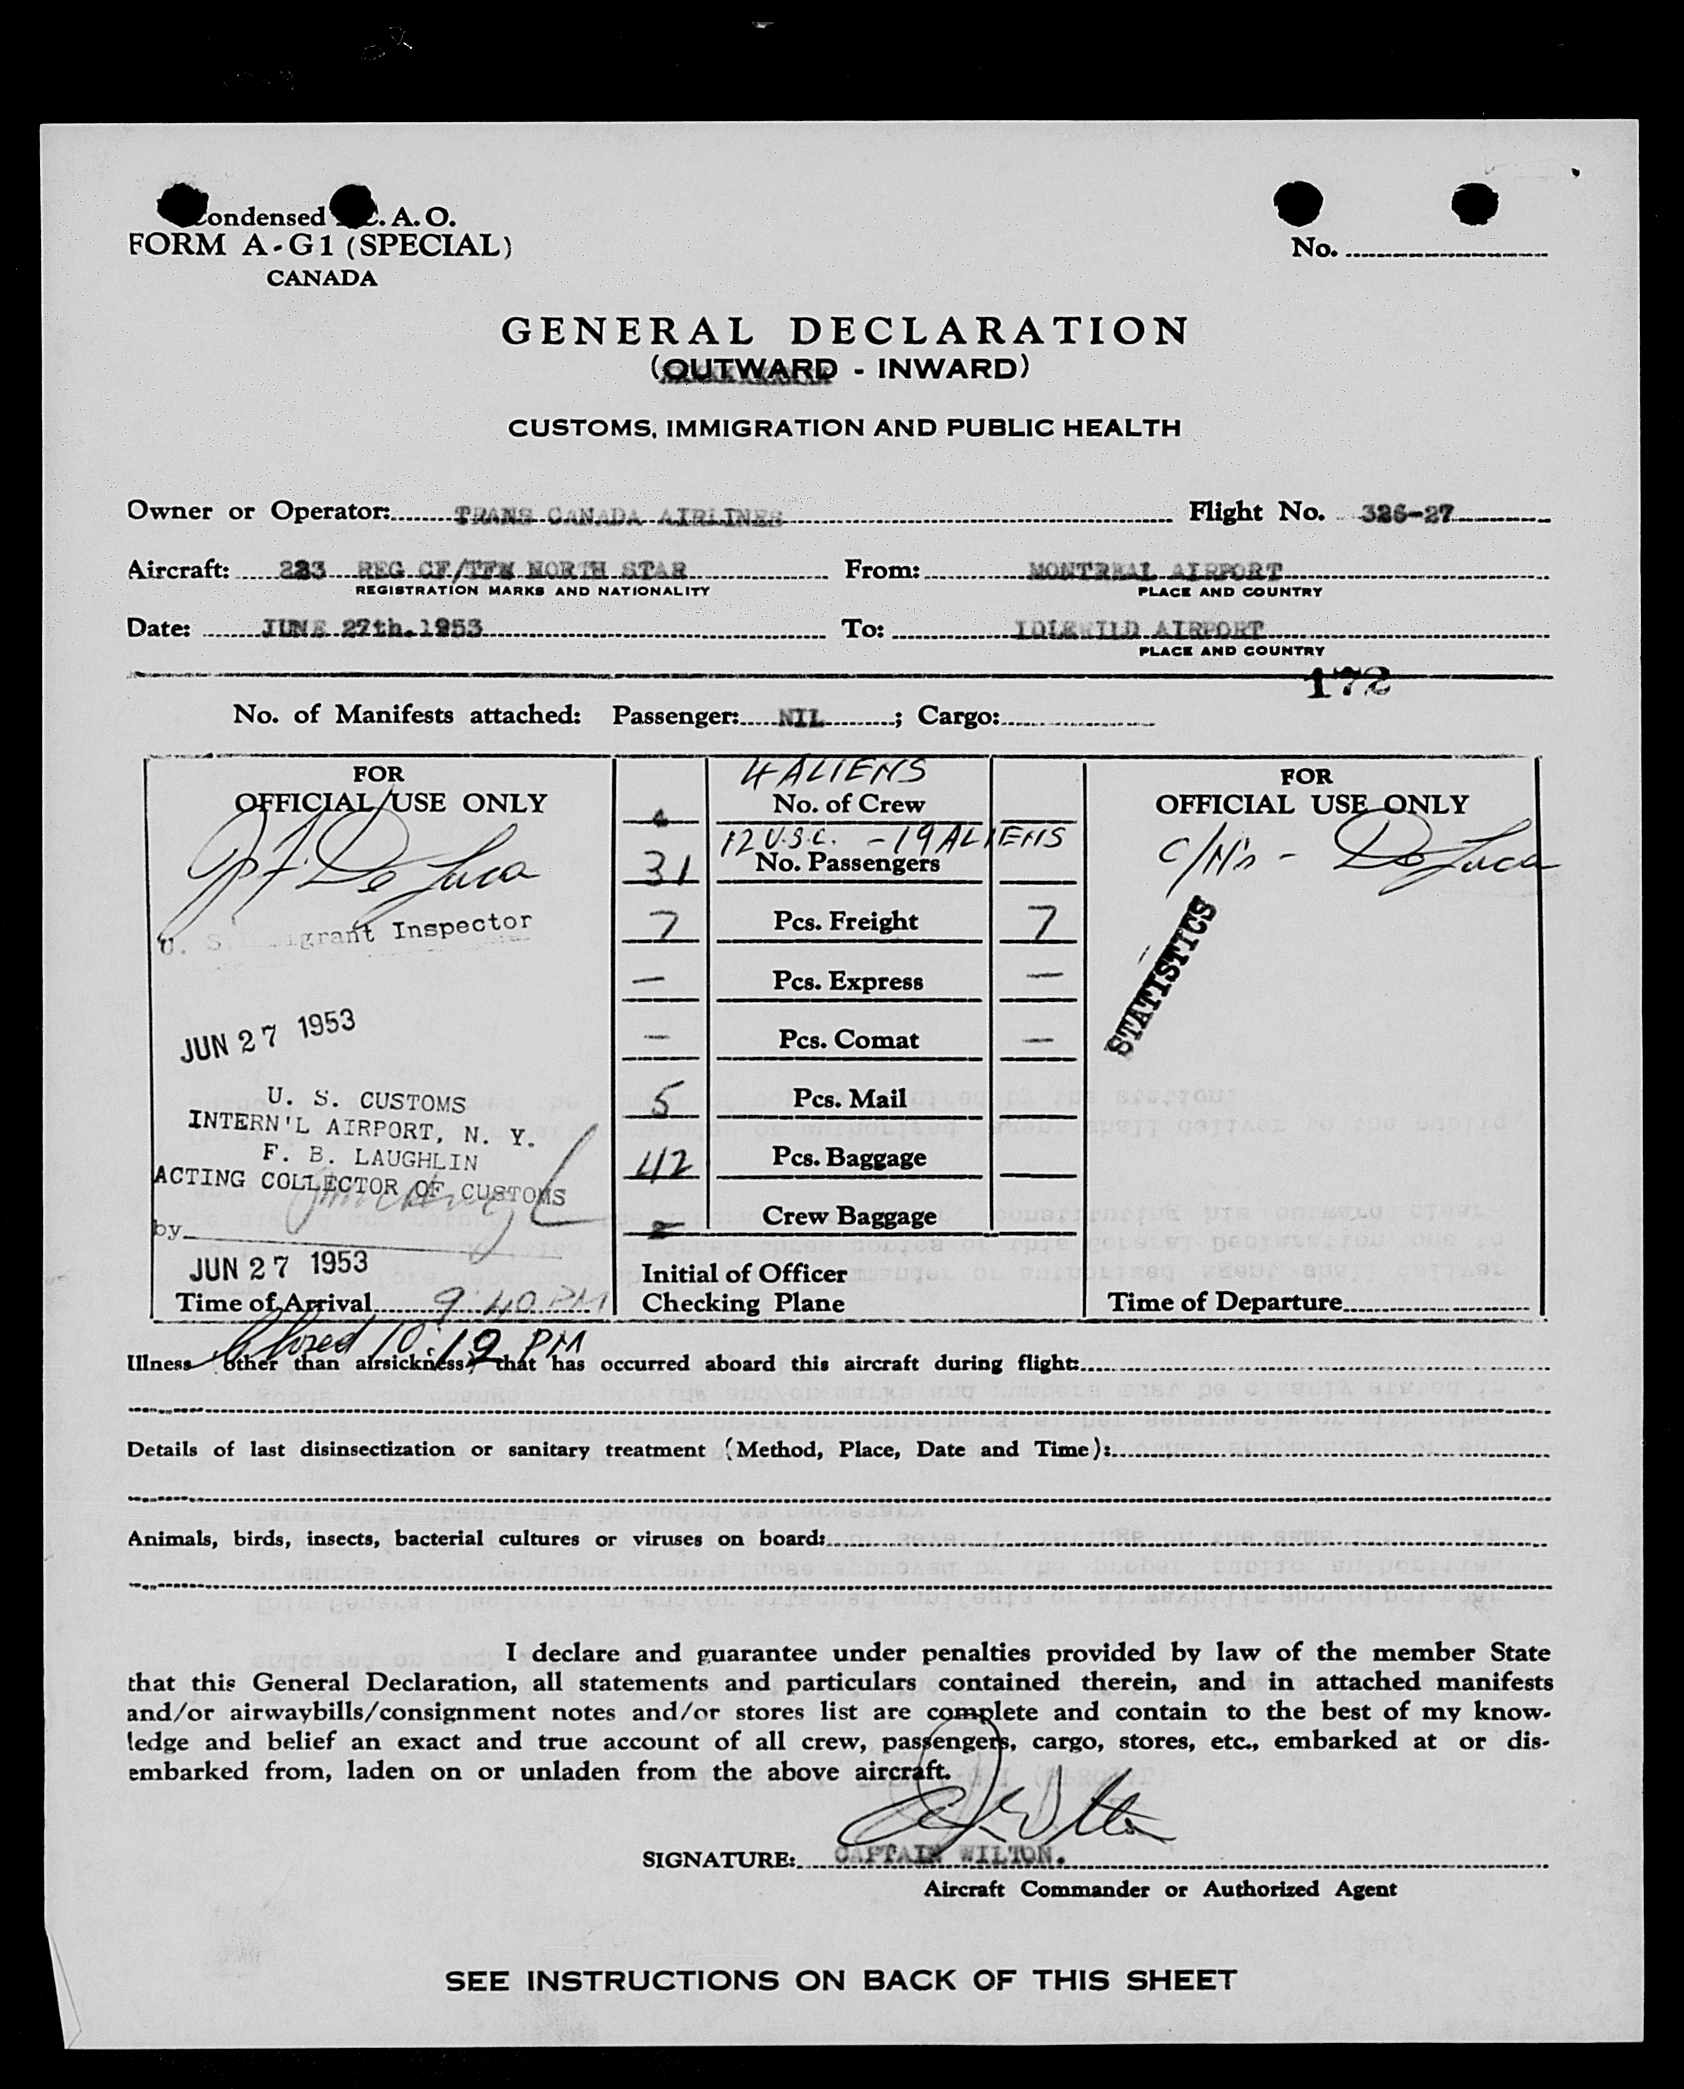 Condensed I.C.A.O.
FORM A-G1 (SPECIAL)
CANADA
No.
GENERAL DECLARATION
(OUTWARD - INWARD)
CUSTOMS, IMMIGRATION AND PUBLIC HEALTH
Owner or Operator: TRANS CANADA AIRLINES Flight No. 326-27
Aircraft: 223 REG CF/TFW NORTH STAR From: MONTREAL AIRPORT
REGISTRATION MARKS AND NATIONALITY PLACE AND COUNTRY
Date: JUNE 27th.1953 To: IDLEWILD AIRPORT
PLACE AND COUNTRY
172
No. of Manifests attached: Passenger: NIL ; Cargo:
FOR
OFFICIAL USE ONLY
De Luca
U. S. Immigrant Inspector
JUN 27 1953
U. S. CUSTOMS
INTERN'L AIRPORT, N. Y.
F. B. LAUGHLIN
ACTING COLLECTOR OF CUSTOMS
by
JUN 27 1953
Time of Arrival 9:40 PM
Closed 10:19 PM
4 ALIENS
4 No. of Crew
12 U.S.C. - 19 ALIENS
31 No. Passengers
7 Pcs. Freight 7
— Pcs. Express —
— Pcs. Comat —
5 Pcs. Mail
42 Pcs. Baggage
Crew Baggage
Initial of Officer
Checking Plane
FOR
OFFICIAL USE ONLY
De Luca
STATISTICS
Time of Departure
Illness (other than airsickness) that has occurred aboard this aircraft during flight:
Details of last disinsectization or sanitary treatment (Method, Place, Date and Time):
Animals, birds, insects, bacterial cultures or viruses on board:
I declare and guarantee under penalties provided by law of the member State
that this General Declaration, all statements and particulars contained therein, and in attached manifests
and/or airwaybills/consignment notes and/or stores list are complete and contain to the best of my know-
ledge and belief an exact and true account of all crew, passengers, cargo, stores, etc., embarked at or dis-
embarked from, laden on or unladen from the above aircraft.
SIGNATURE: CAPTAIN WILTON.
Aircraft Commander or Authorized Agent
SEE INSTRUCTIONS ON BACK OF THIS SHEET